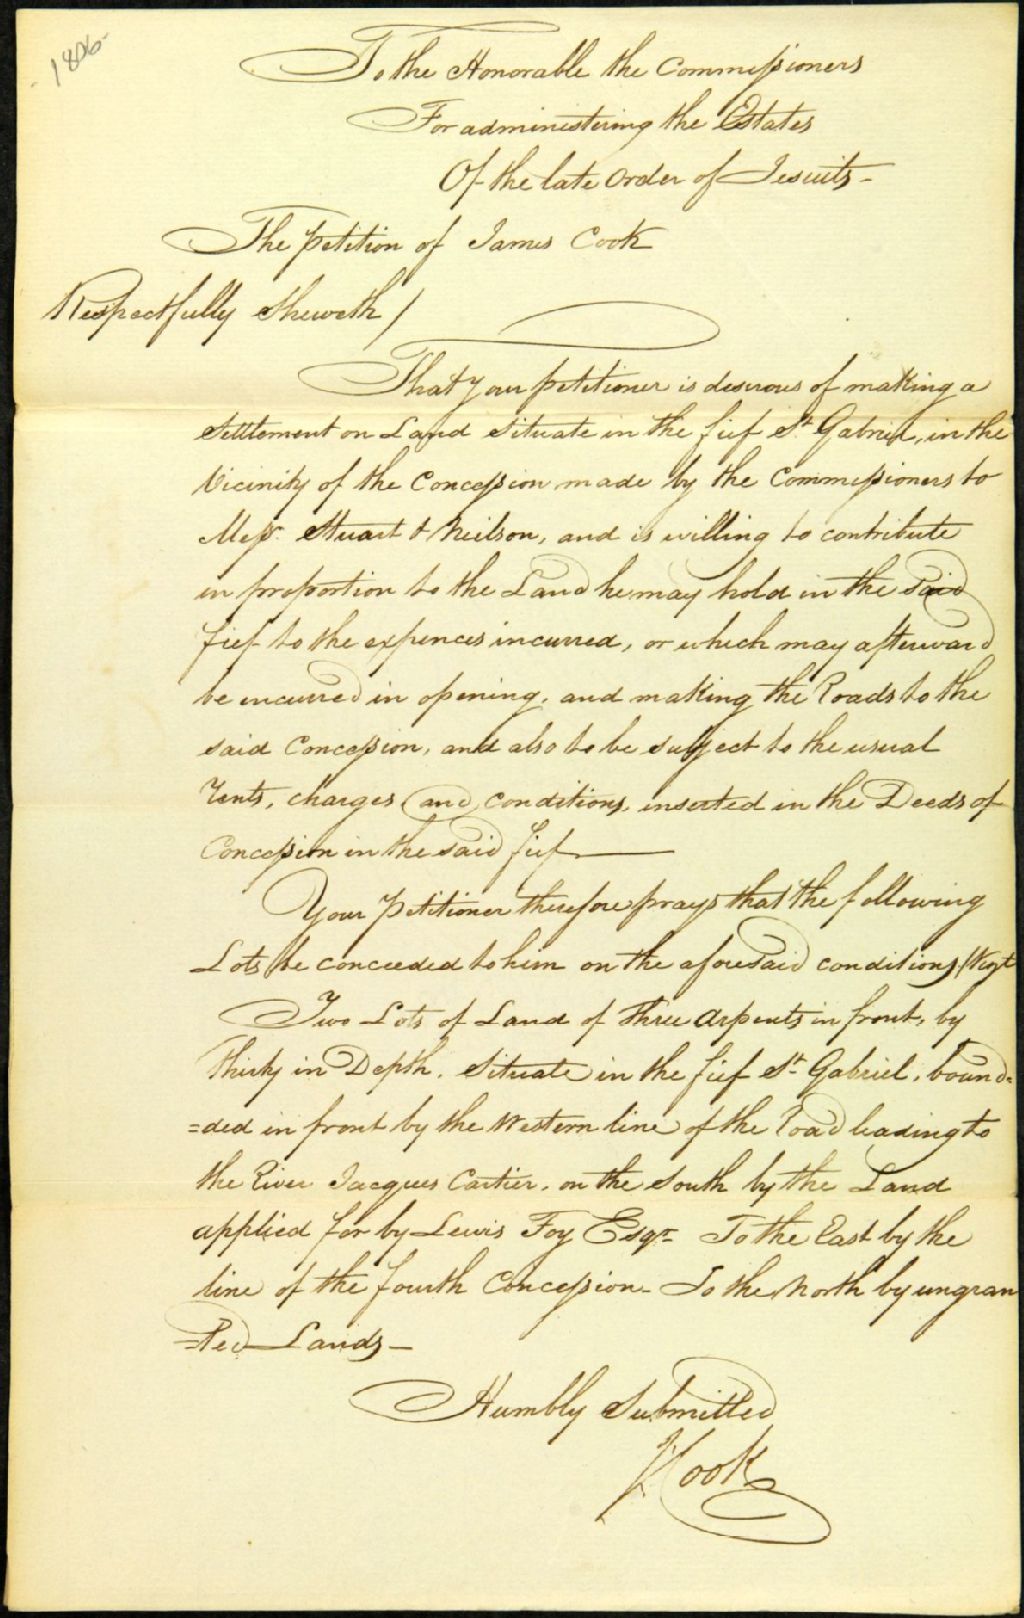 1806-
To the Honorable the Commissioners
For administering the Estates
Of the late order of Jesuits-
The petition of James Cook
Respectfully Sheweth /
That your petitioner is desirous of making a
Settlement on Land situate in the fief St. Gabriel, in the
Vicinity of the Concession made by the Commissioners to
Messr. Stuart & Neilson, and is willing to contribute
in proportion to the Land he may hold in the said
fief to the expences incurred, or which may afterward
be incurred in opening, and making the Roads to the
said Concession, and also to be subject to the usual
rents, charges and conditions, inserted in the Deeds of
Concession in the said fief
Your Petitioner therefore prays that the following
Lots be conceeded to him on the aforesaid conditions,
Two Lots of Land of three arpents in front, by
Thirty in Depth. Situate in the fief St. Gabriel, bound=
=ded in front by the Western line of the Road leading to
the River Jacques Cartier. on the South by the Land
applied for by Lewis Foy Esqr- To the East by the
line of the fourth Concession- To the North by ungran
=ted Lands-
Humbly Submitted
J Cook